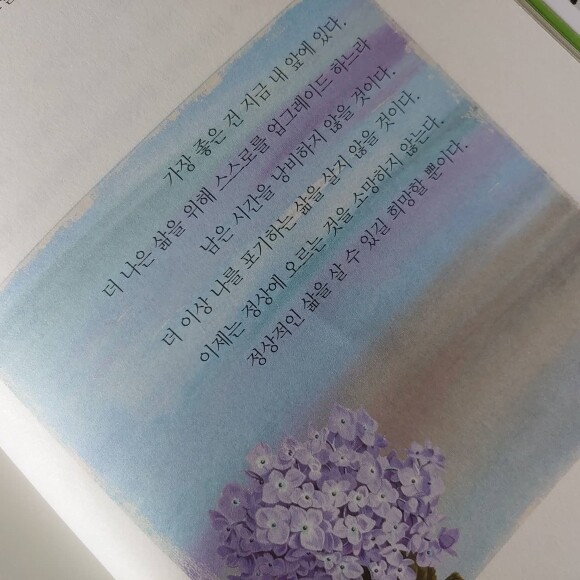 가장 좋은 건 지금 내 앞에 있다.
더 나은 삶을 위해 스스로를 업그레이드 하느라
남은 시간을 낭비하지 않을 것이다.
더 이상 나를 포기하는 삶을 살지 않을 것이다.
이제는 정상에 오르는 것을 소망하지 않는다.
정상적인 삶을 살 수 있길 희망할 뿐이다.